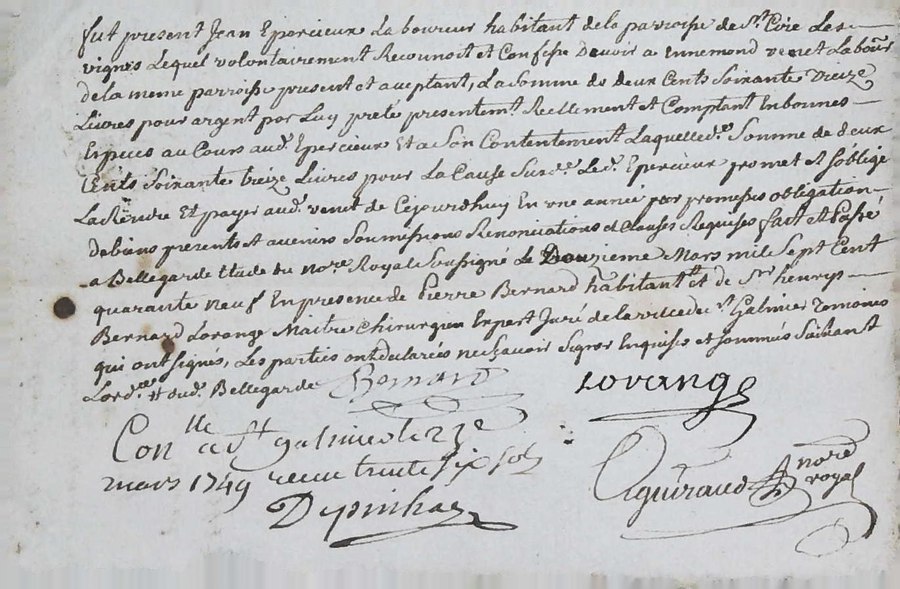 fut present Jean Epercieux Laboureur habitant de la parroisse de St. Cire Les
vignes Lequel volontairement Reconnoit et Confesse Devoir a Ennemond venet Labour
de la meme parroisse present et aceptant, La Somme de deux Cents Soixante treize
Livres pour argent par Luy preté presentemt. Reellement et Comptant En bonnes
Especes au Cours aud. Epercieux Et a Son Contentement Laquelle de. Somme de deux
Cents Soixante treize Livres pour La Cause Surde. Led. Epercieux promet et soblige
La Rendre Et payer aud. venet de Cejourdhuy En une année par promesses obligation
de biens presents et avenirs Soumissions Renonciations et Clauses Requises fait et Passé
a Bellegarde Etude du nore. Royal Soussigné Le Douzieme Mars mil Sept Cent
quarante neuf En presence de Pierre Bernard habitantt. et de Sr. henrys
Bernard Lorange Maitre Chirurgien Expert Juré de la ville de St. Galmier Temoins
qui ont signés, Les parties ont declarées ne Scavoir Signer Enquises et sommées Suivant
Lordce. et aud. Bellegarde Bernard Lorange
Conlle a St galmier le 22e
mars 1749 receu trente six sols
Depinhac
Aguiraud nore royal